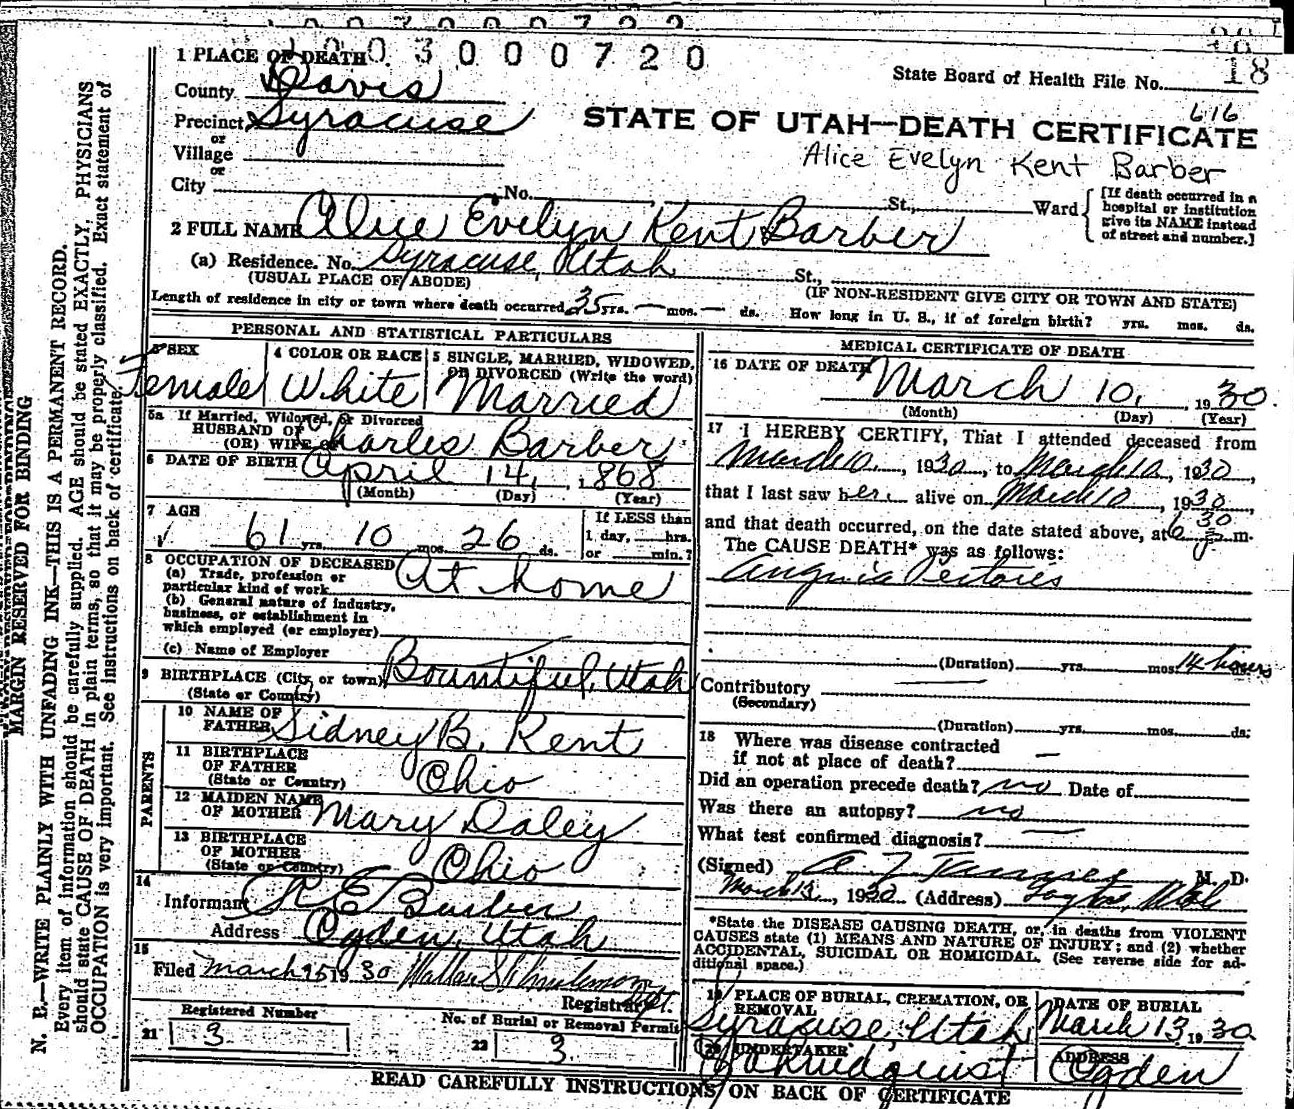 1003000720
1 PLACE OF DEATH
State Board of Health File No. 18
County Davis
616
Precinct Syracuse
STATE OF UTAH—DEATH CERTIFICATE
or
Village
Alice Evelyn Kent Barber
or
City No. St., Ward [If death occurred in a hospital or institution give its NAME instead of street and number.]
2 FULL NAME Alice Evelyn Kent Barber
(a) Residence. No. Syracuse, Utah St.,
(USUAL PLACE OF ABODE) (IF NON-RESIDENT GIVE CITY OR TOWN AND STATE)
Length of residence in city or town where death occurred 35 yrs. — mos. — ds. How long in U. S., if of foreign birth? yrs. mos. ds.
PERSONAL AND STATISTICAL PARTICULARS
3 SEX
Female
4 COLOR OR RACE
White
5 SINGLE, MARRIED, WIDOWED,
OR DIVORCED (Write the word)
Married
5a If Married, Widowed, or Divorced
HUSBAND OF
(OR) WIFE OF Charles Barber
6 DATE OF BIRTH April 14, 1868
(Month) (Day) (Year)
7 AGE
61 yrs. 10 mos. 26 ds.
If LESS than
1 day, hrs.
or min.?
8 OCCUPATION OF DECEASED
(a) Trade, profession or
particular kind of work At home
(b) General nature of industry,
business, or establishment in
which employed (or employer)
(c) Name of Employer
9 BIRTHPLACE (City or town) Bountiful, Utah
(State or Country)
PARENTS
10 NAME OF
FATHER Sidney B. Kent
11 BIRTHPLACE
OF FATHER
(State or Country) Ohio
12 MAIDEN NAME
OF MOTHER Mary Daley
13 BIRTHPLACE
OF MOTHER
(State or Country) Ohio
14
Informant R E Barber
Address Ogden, Utah
15
Filed March 25 1930
Registrar
Registered Number
21 3
No. of Burial or Removal Permit
22 3
MEDICAL CERTIFICATE OF DEATH
16 DATE OF DEATH March 10, 1930.
(Month) (Day) (Year)
17 I HEREBY CERTIFY, That I attended deceased from
March 10, 1930, to March 10, 1930,
that I last saw her alive on March 10, 1930,
and that death occurred, on the date stated above, at 6 30 m.
The CAUSE DEATH* was as follows:
Anginia Pectoris
(Duration) yrs. mos. 14 hours ds.
Contributory
(Secondary)
(Duration) yrs. mos. ds.
18 Where was disease contracted
if not at place of death? —
Did an operation precede death? no Date of
Was there an autopsy? no
What test confirmed diagnosis? —
(Signed) A Z Tanner M. D.
March 13, 1930 (Address) Layton, Utah
*State the DISEASE CAUSING DEATH, or, in deaths from VIOLENT
CAUSES state (1) MEANS AND NATURE OF INJURY; and (2) whether
ACCIDENTAL, SUICIDAL OR HOMICIDAL. (See reverse side for ad-
ditional space.)
19 PLACE OF BURIAL, CREMATION, OR
REMOVAL
Syracuse, Utah
DATE OF BURIAL
March 13, 1930
20 UNDERTAKER
ADDRESS
Ogden
READ CAREFULLY INSTRUCTIONS ON BACK OF CERTIFICATE
MARGIN RESERVED FOR BINDING
N. B.—WRITE PLAINLY WITH UNFADING INK—THIS IS A PERMANENT RECORD.
Every item of information should be carefully supplied. AGE should be stated EXACTLY. PHYSICIANS
should state CAUSE OF DEATH in plain terms, so that it may be properly classified. Exact statement of
OCCUPATION is very important. See instructions on back of certificate.